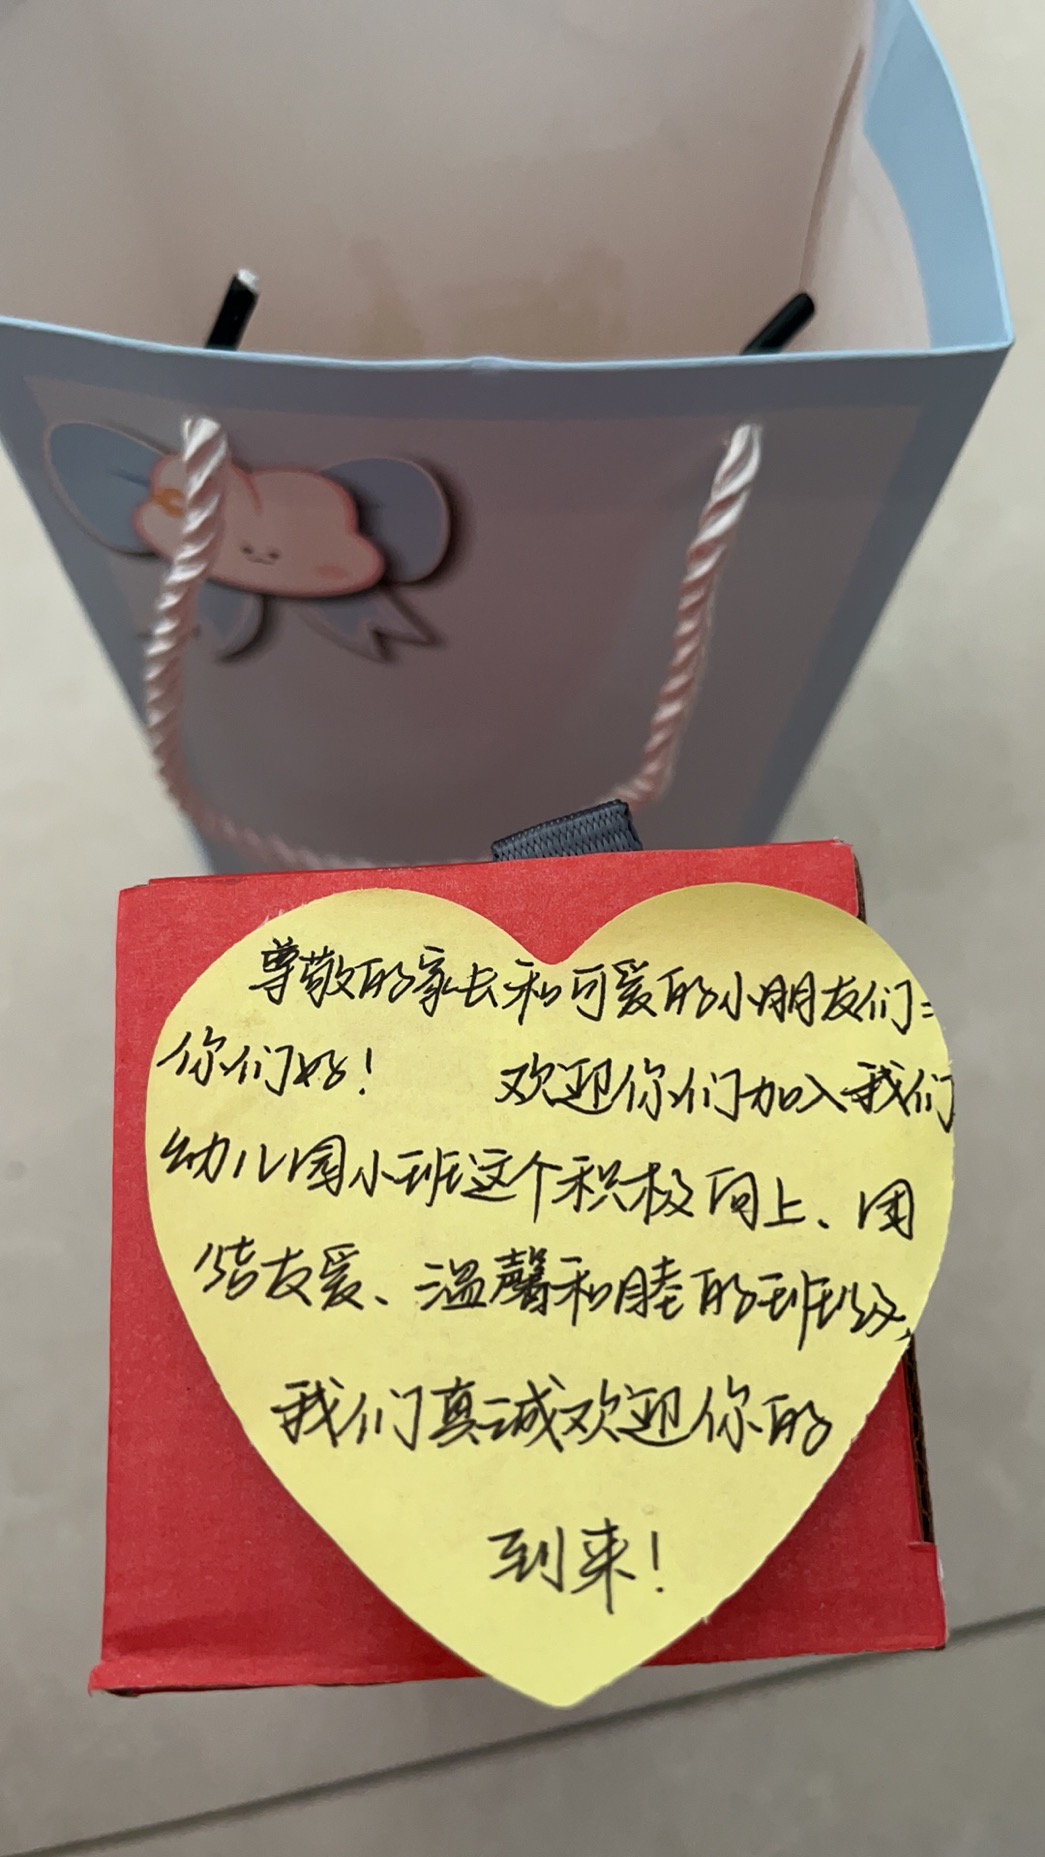 尊敬的家长和可爱的小朋友们:
你们好! 欢迎你们加入我们
幼儿园小班这个积极向上、团
结友爱、温馨和睦的班级,
我们真诚欢迎你的
到来!